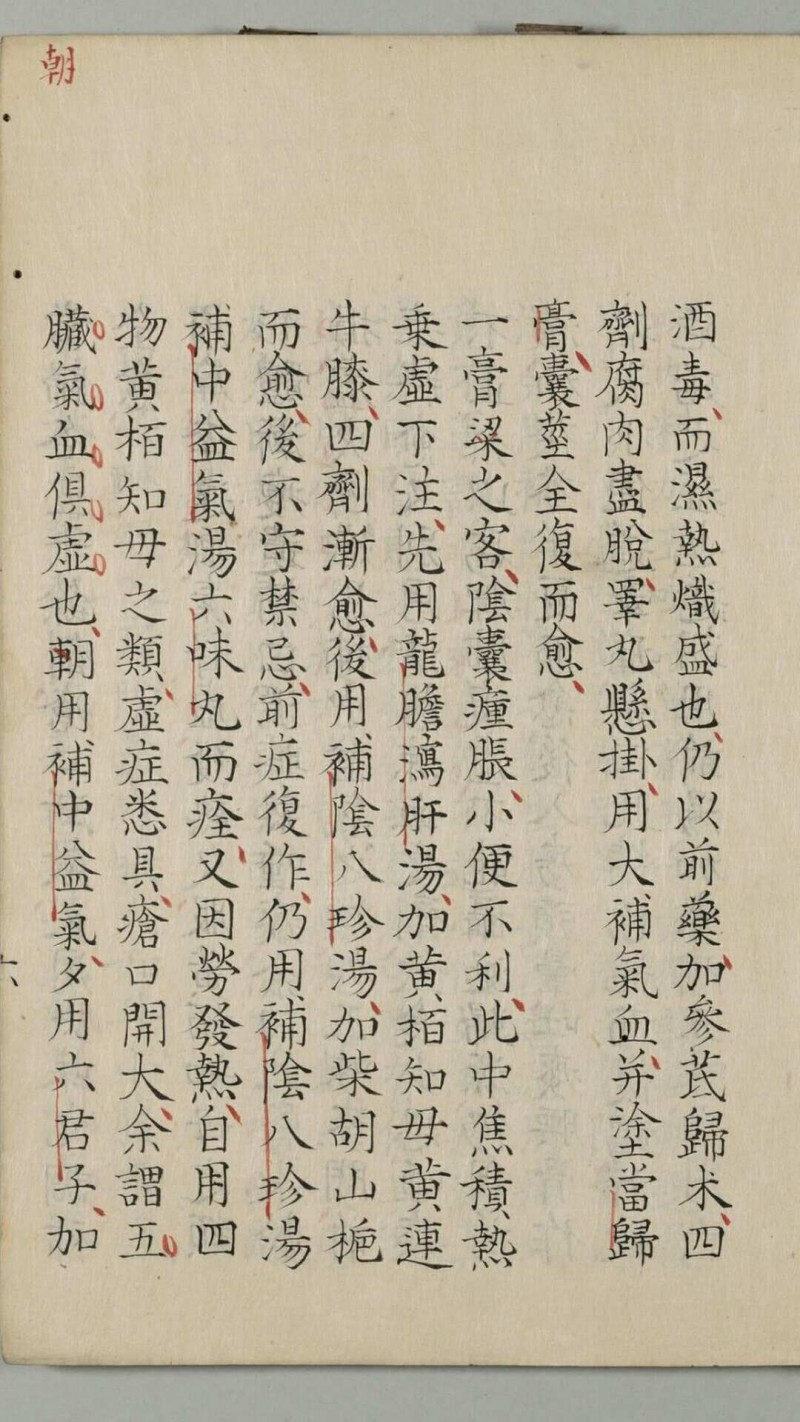 朝
酒毒而濕熱熾盛也仍以前藥加參芪歸朮四
劑腐肉盡脫睪丸懸掛用大補氣血并塗當歸
膏囊莖全復而愈
一膏粱之客陰囊瘇脹小便不利此中焦積熱
乗虛下注先用龍膽瀉肝湯加黃栢知毋黃連
牛膝四劑漸愈後用補陰八珍湯加柴胡山梔
而愈後不守禁忌前症復作仍用補陰八珍湯
補中益氣湯六味丸而痊又因勞發熱自用四
物黃栢知毋之類虛症悉具瘡口開大余謂五
臟氣血俱虛也朝用補中益氣夕用六君子加
六